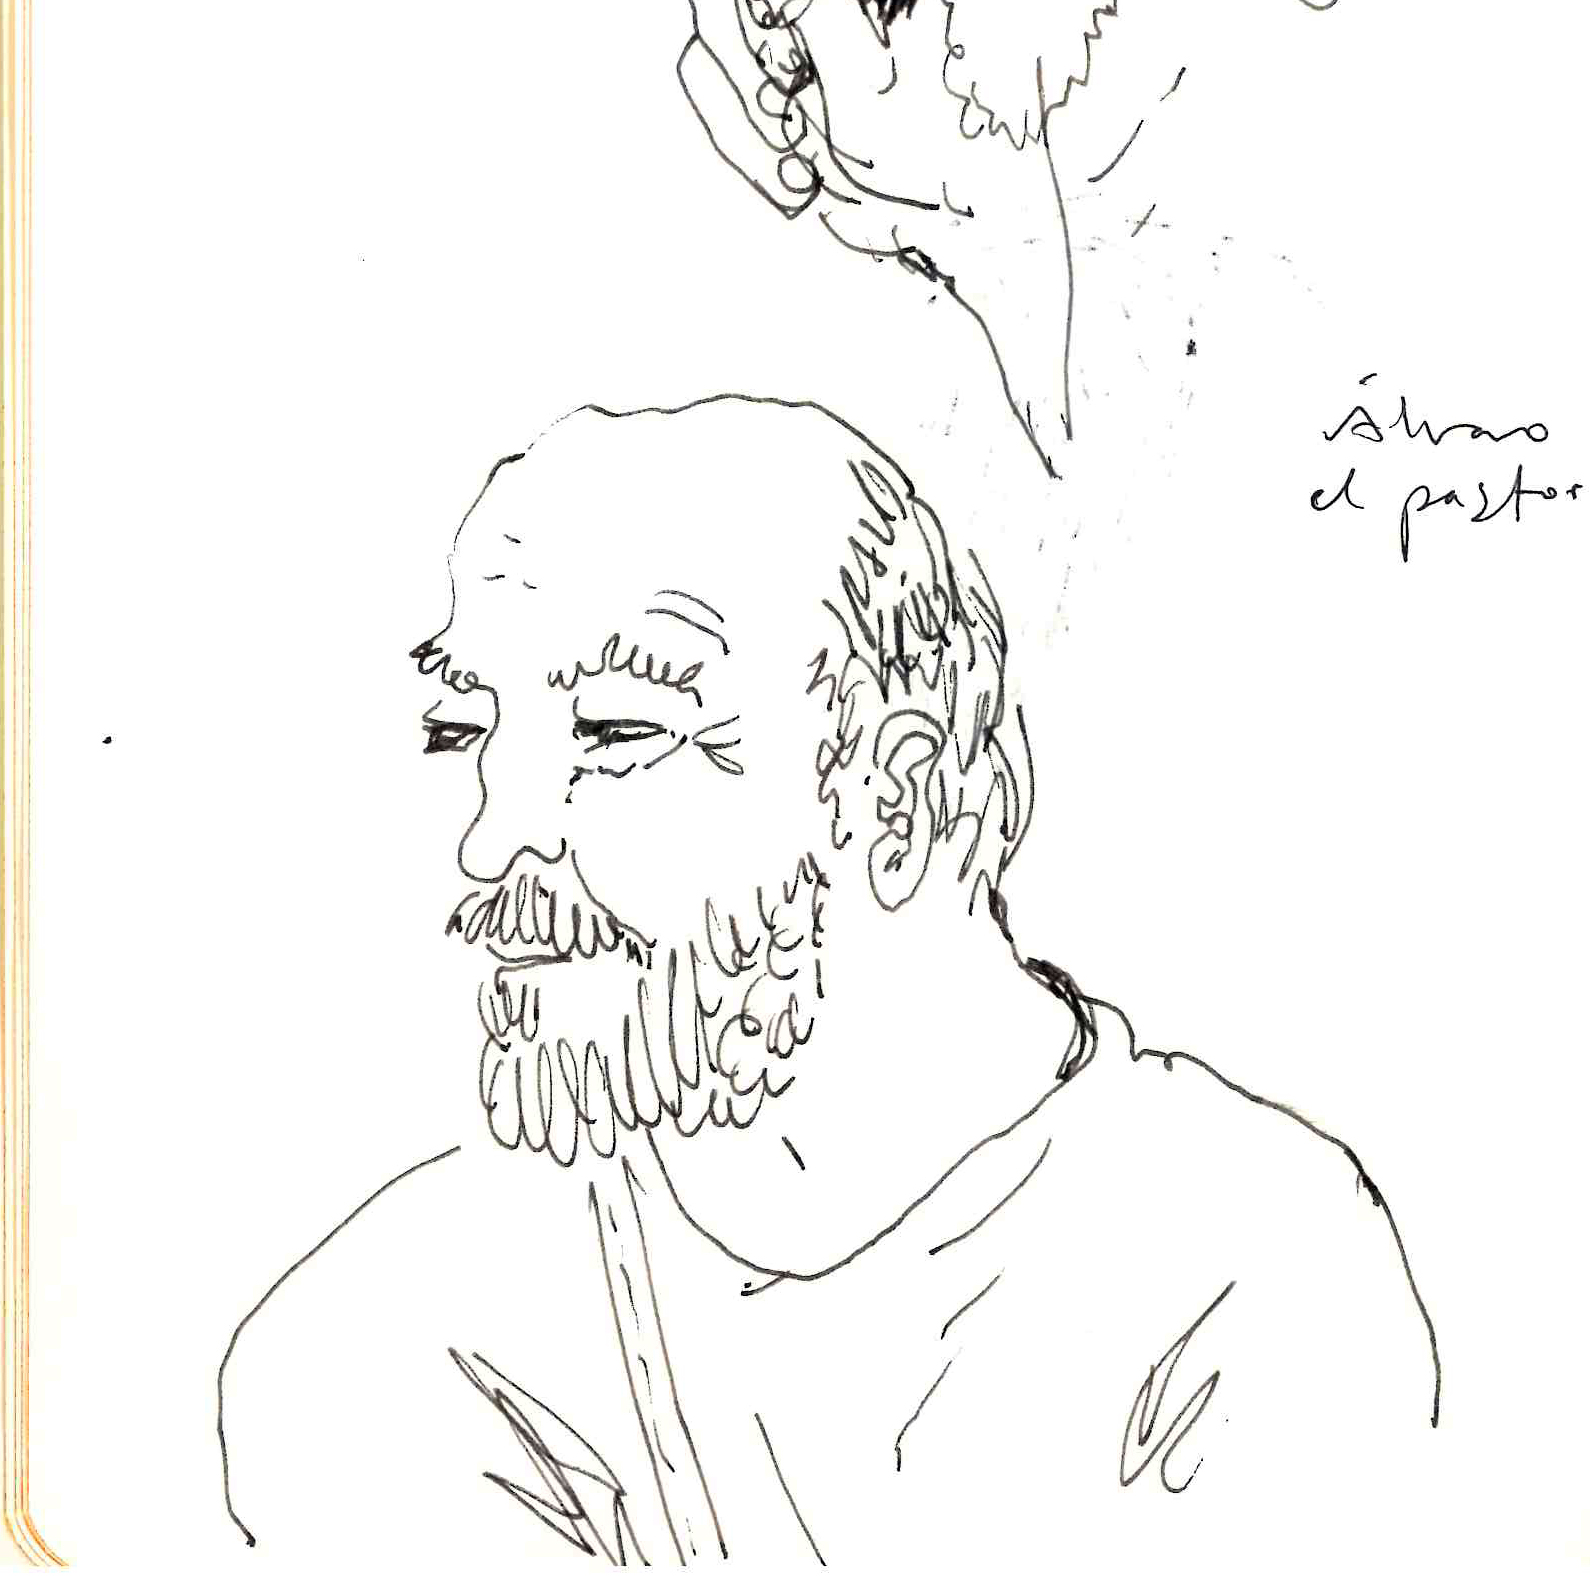 Álvaro
el pastor